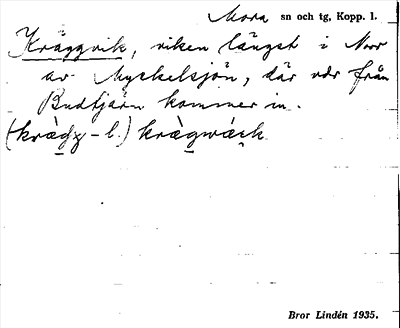 Mora sn och tg, Kopp. l.
Kräggvik, viken längst i Norr
av Myckelsjön, där vdr från
Budtjärn kommer in.
Bror Lindén 1935.